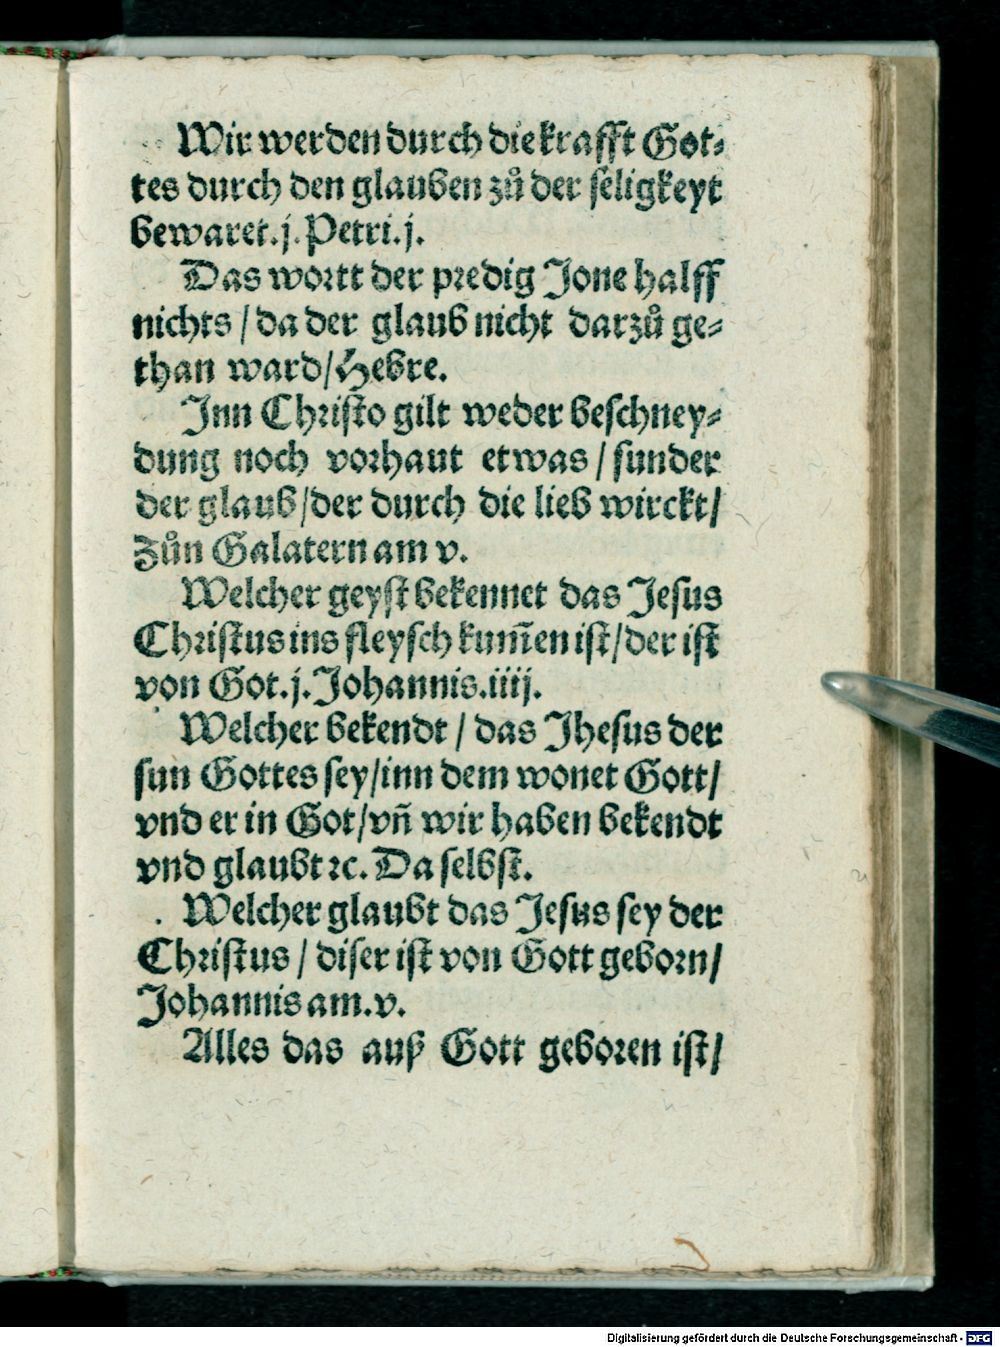 Wir werden durch die krafft Got⸗
tes durch den glauben zů der seligkeyt
bewaret.j.Petri.j.
Das wortt der predig Jone halff
nichts / da der glaub nicht darzů ge⸗
than ward/Hebre.
Jnn Christo gilt weder beschney⸗
dung noch vorhaut etwas / sunder
der glaub/der durch die lieb wirckt/
Zůn Galatern am v.
Welcher geyst bekennet das Jesus
Christus ins fleysch kum̄en ist/der ist
von Got.j.Johannis.iiij.
Welcher bekendt / das Jhesus der
sun Gottes sey/inn dem wonet Gott/
vnd er in Got/vñ wir haben bekendt
vnd glaubt ꝛc. Da selbst.
Welcher glaubt das Jesus sey der
Christus / diser ist von Gott geborn/
Johannis am.v.
Alles das auß Gott geboren ist/
Digitalisierung gefördert durch die Deutsche Forschungsgemeinschaft - DFG